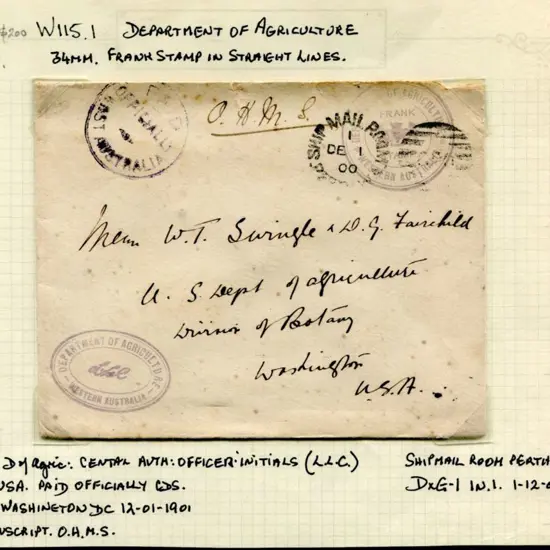 $200 W115.1 DEPARTMENT OF AGRICULTURE
34MM. FRANK STAMP IN STRAIGHT LINES.
O.H.M.S.
PAID OFFICIALLY
WEST AUSTRALIA
SHIP MAIL ROOM
1
DE 1
00
OF AGRICULTURE
FRANK
WESTERN AUSTRALIA
Messrs W.T. Swingle & D.G. Fairchild
U.S. Dept of Agriculture
Division of Botany
Washington
U.S.A.
DEPARTMENT OF AGRICULTURE
LLC
WESTERN AUSTRALIA
CENTAL AUTH: OFFICER: INITIALS (L.L.C.)
USA. PAID OFFICIALLY CDS.
WASHINGTON DC 12-01-1901
USCRIPT. O.H.M.S.
SHIPMAIL ROOM PERTH
DXG-1 IN.1. 1-12-0